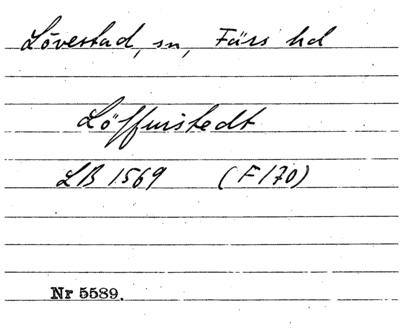 Lövestad, sn, Färs hd
Löffuistedt
LB 1569 (F 170)
Nr 5589.